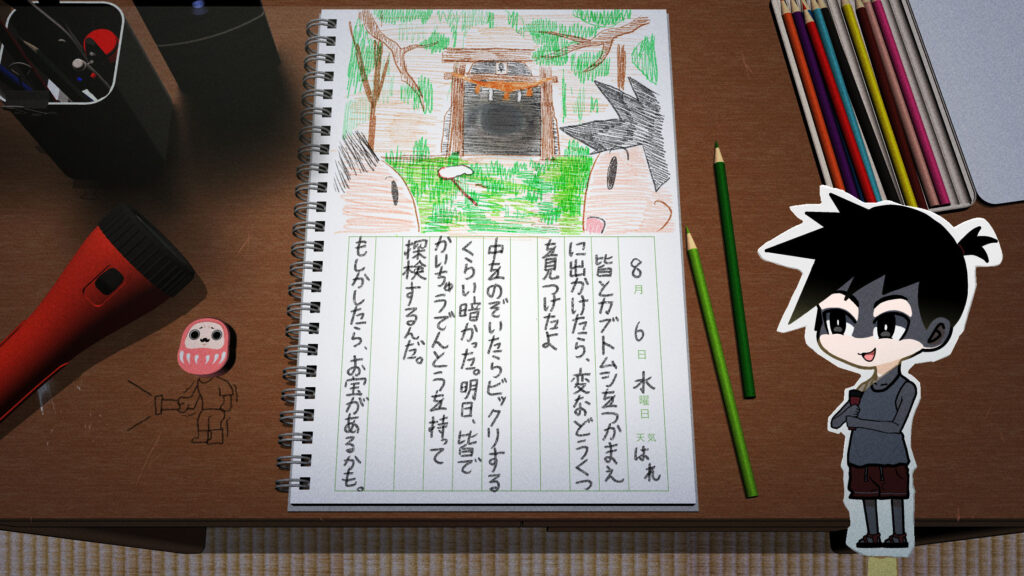 8月6日水曜日天気はれ
皆とカブトムシをつかまえ
に出かけたら、変などうくつ
を見つけたよ
中をのぞいたらビックリする
くらい暗かった。明日、皆で
かいちゅうでんとうを持って
探検するんだ。
もしかしたら、お宝があるかも。